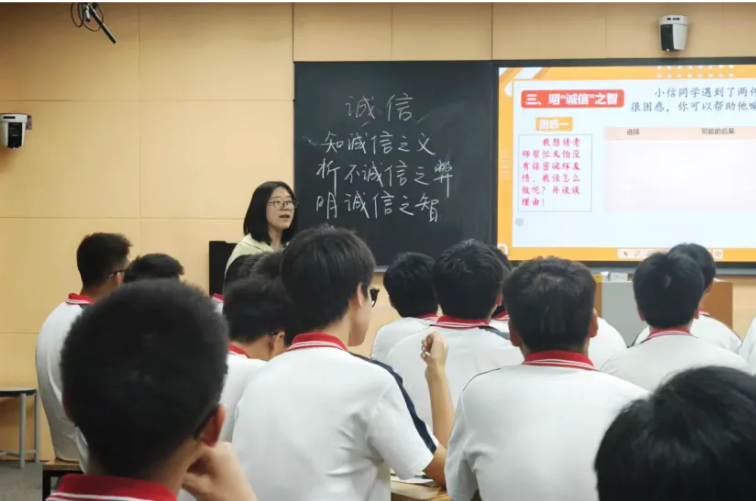 诚信
知诚信之义
析不诚信之弊
明诚信之智
三、明“诚信”之智
小信同学遇到了两件
很困惑，你可以帮助他嘛
困惑一
我想请老
师帮忙又怕没
有保密破坏友
情，我该怎么
做呢？并谈谈
理由！
选择
可能的后果